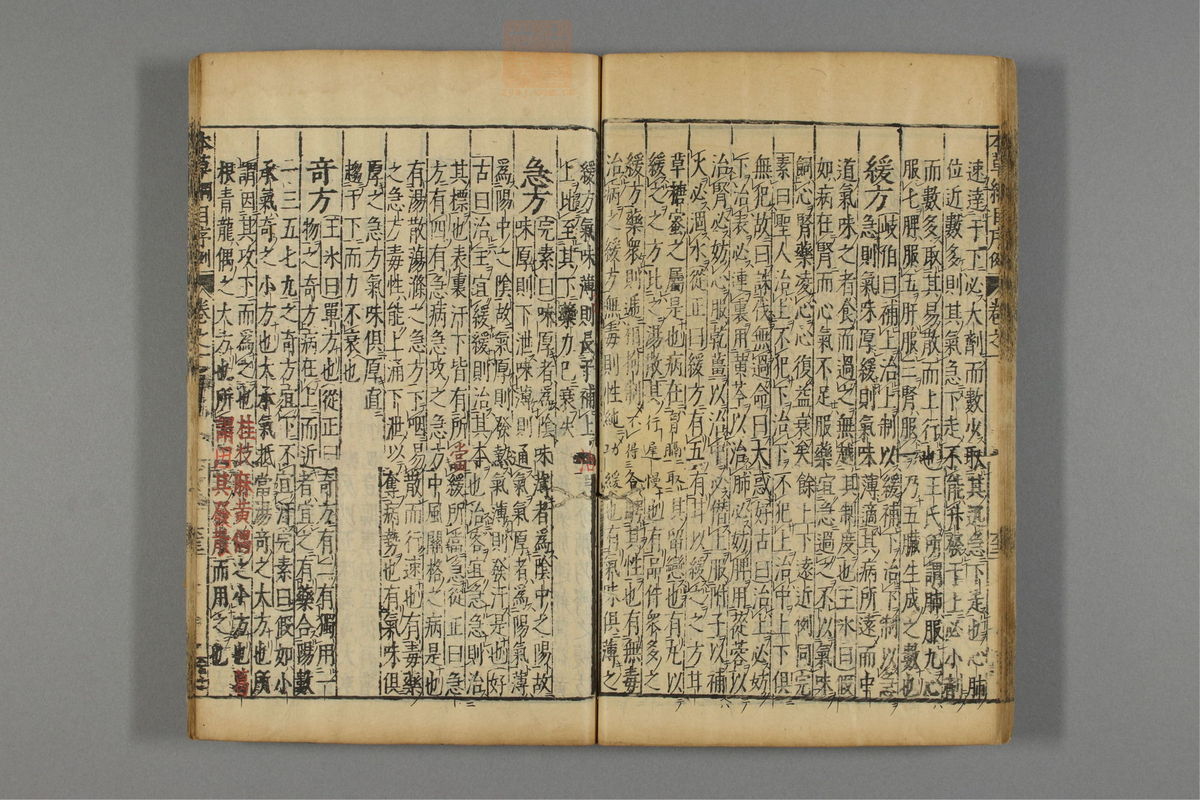 速達于下必大劑而數少取其迅急下走也心肺
位近數多則其氣急下走不能升發于上必小劑
而數多取其易散而上行也王氏所謂肺服九心
服七脾服五肝服三腎服一乃五臟生成之數也
緩方 岐伯曰補上治上制以緩補下治下制以急
急則氣味厚緩則氣味薄適其病所遠而中
道氣味之者食而過之無越其制度也王冰曰假
如病在腎而心氣不足服藥宜急過之不以氣味
飼心腎藥凌心心復益衰矣餘上下遠近例同完
素曰聖人治上不犯下治下不犯上治中上下俱
無犯故曰誅伐無過命曰大惑好古曰治上必妨
下治表必連裏用黃芩以治肺必妨脾用蓯蓉以
治腎必妨心服乾薑以治中必僭上服附子以補
火必涸水從正曰緩方有五有甘以緩之之方甘
草糖蜜之屬是也病在胸膈取其留戀也有丸以
緩之之方比之湯散其行遲慢也有品件衆多之
緩方藥衆則遞相拘制不得各騁其性也有無毒
治病之緩方無毒則性純功緩也有氣味俱薄之
緩方氣味薄則長于補上治
上比至其下藥力已衰矣
急方 完素曰味厚者爲陰味薄者爲陰中之陽故
味厚則下泄味薄則通氣氣厚者爲陽氣薄
爲陽中之陰故氣厚則發熱氣薄則發汗是也好
古曰治主宜緩緩則治其本也治客宜急急則治
其標也表裏汗下皆有所當緩所當急從正曰急
方有四有急病急攻之急方中風關格之病是也
有湯散蕩滌之急方下咽易散而行速也有毒藥
之急方毒性能上涌下泄以奪病勢也有氣味俱
厚之急方氣味俱厚直
趨于下而力不衰也
奇方 王冰曰單方也從正曰奇方有二有獨用一
物之奇方病在上而近者宜之有藥合陽數
一三五七九之奇方宜下不宜汗完素曰假如小
承氣奇之小方也大承氣抵當湯奇之大方也所
謂因其攻下而爲之也桂枝麻黃偶之小方也葛
根青龍偶之大方也所謂因其發表而用之也
本草綱目序例 卷之一